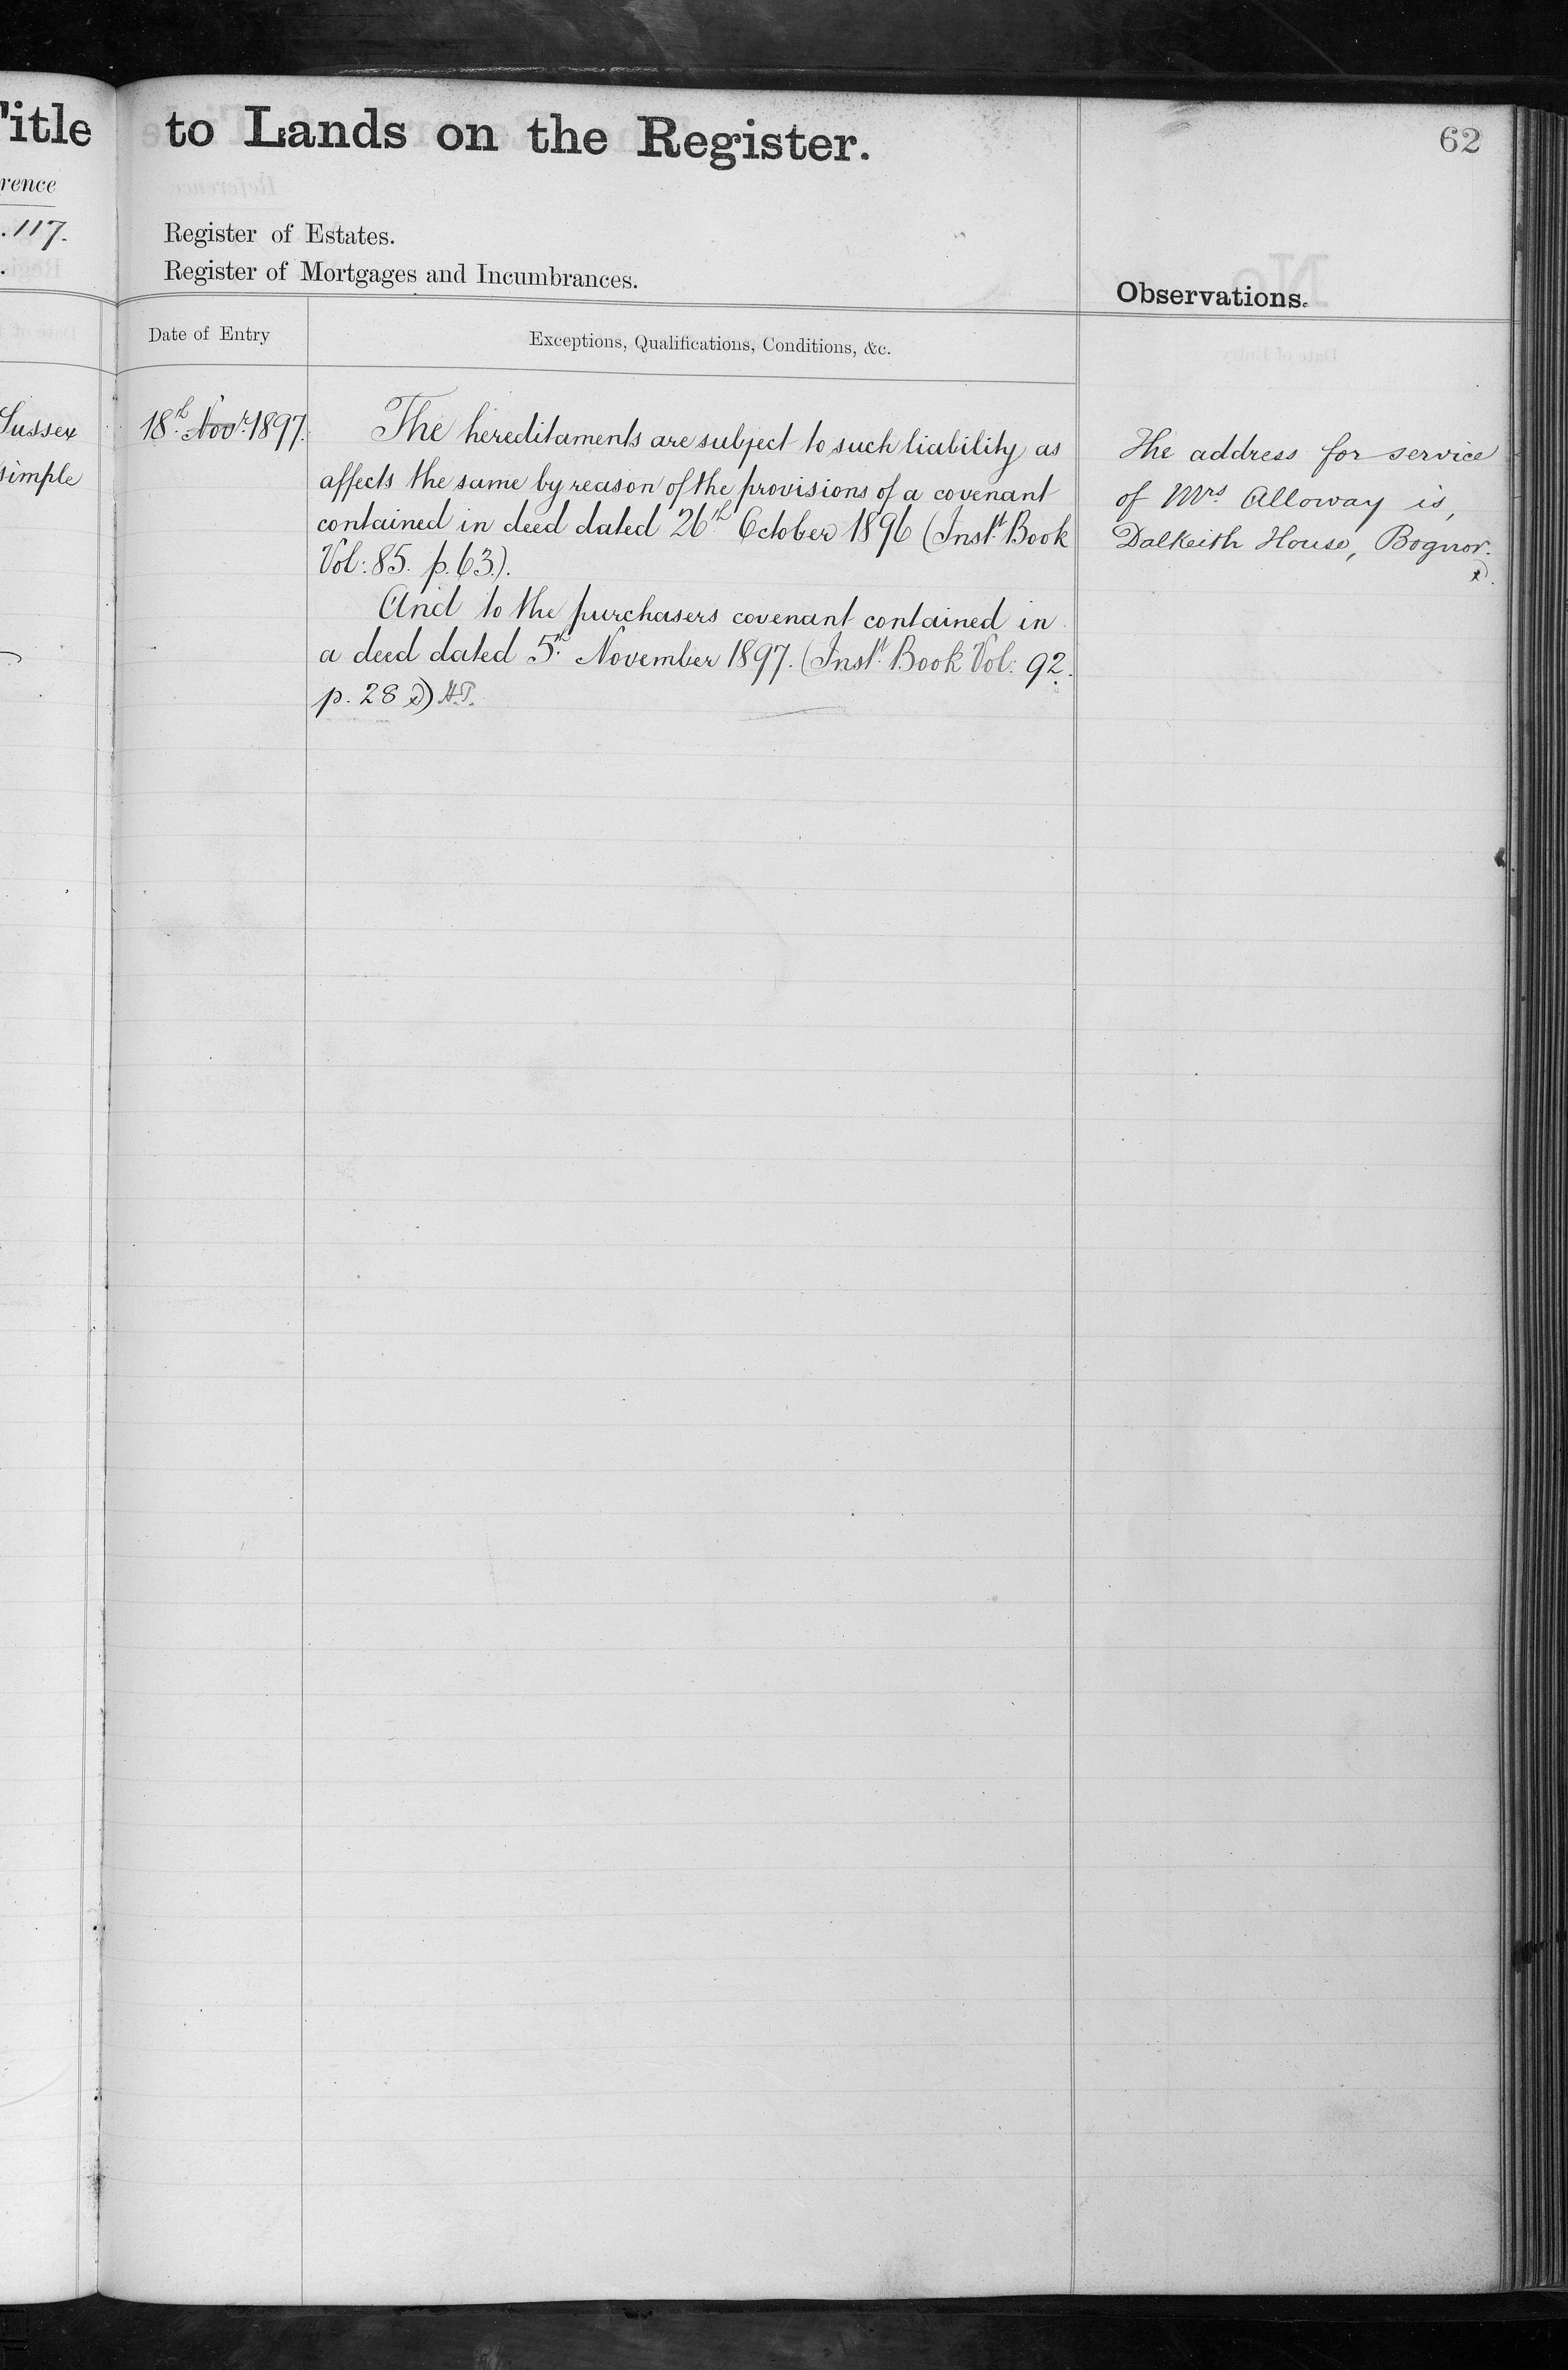 Title
rence
. 117.
Sussex
simple
to Lands on the Register.
62
Register of Estates.
Register of Mortgages and Incumbrances.
Observations.
Date of Entry
Exceptions, Qualifications, Conditions, &c.
18th Novr. 1897.
The hereditaments are subject to such liability as
affects the same by reason of the provisions of a covenant
contained in deed dated 26th October 1896 (Inst. Book
Vol: 85. p. 63.).
And to the purchasers covenant contained in
a deed dated 5th November 1897. (Inst. Book Vol: 92.
p. 28 ) H.T.
The address for service
of Mrs Alloway is,
Dalkeith House, Bognor.